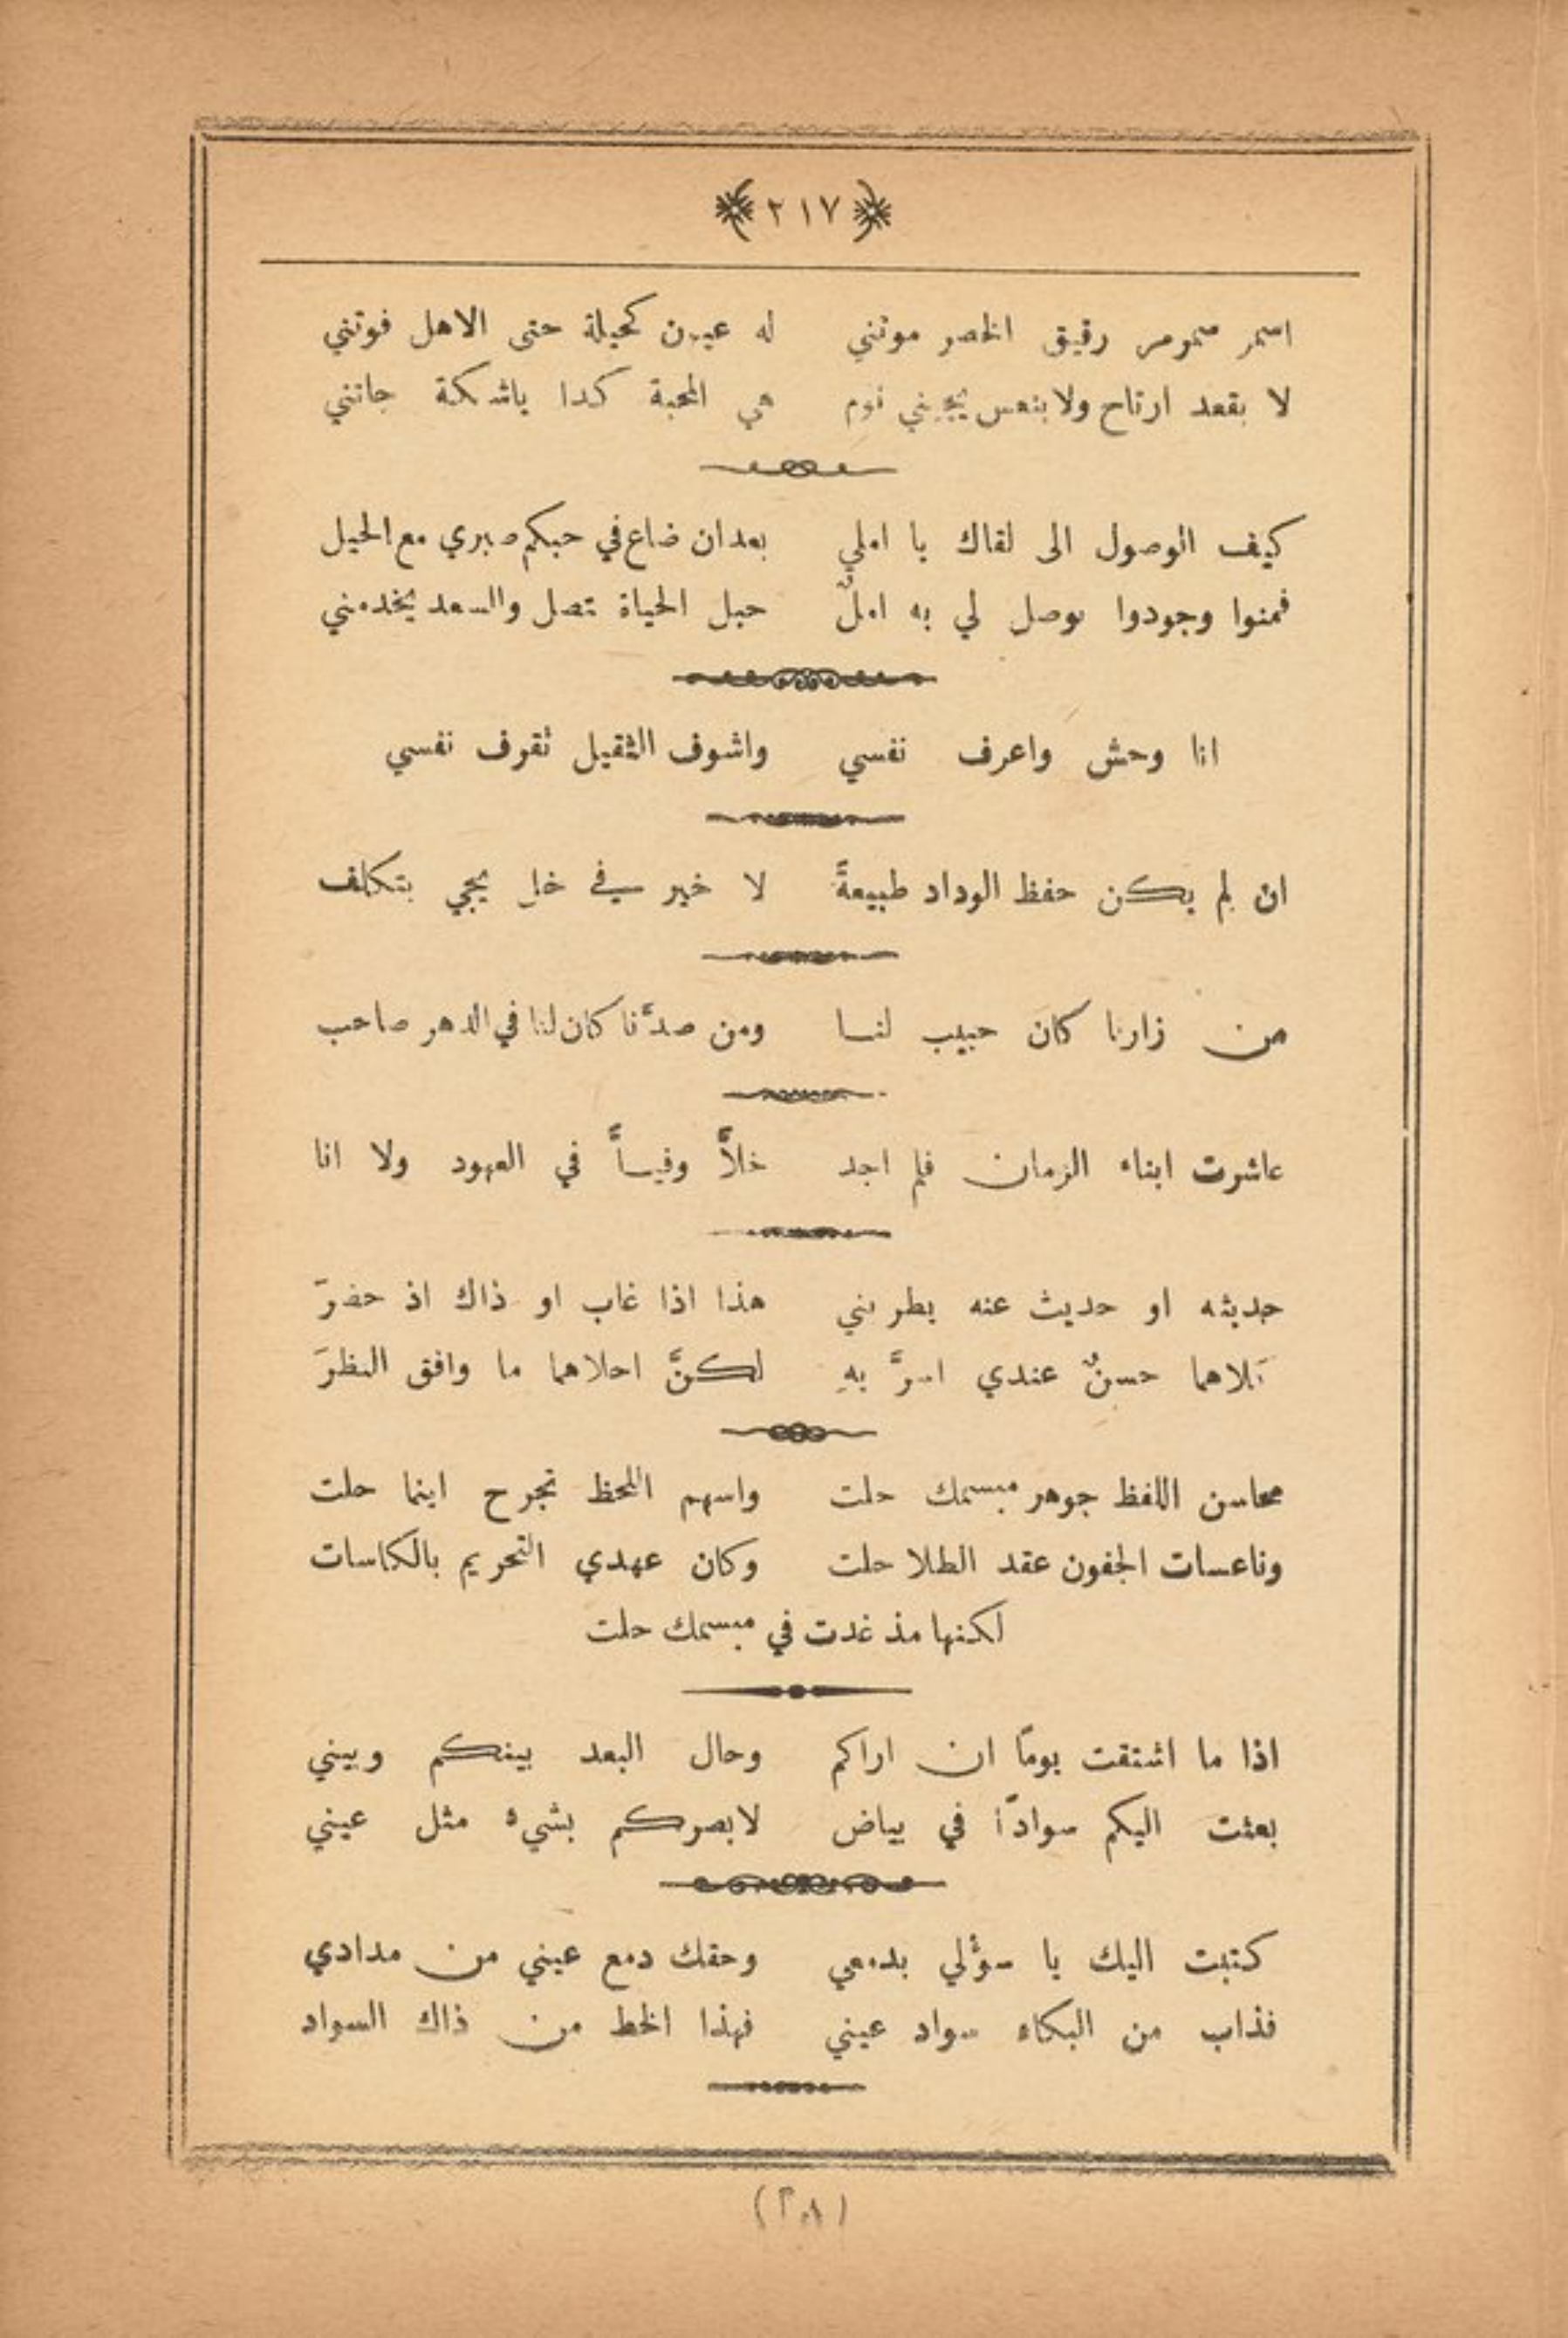 ٢١٧
اسمر سمرمر رقيق الخصر موتني له عيون كحيلة حتى الاهل فوتني
لا بقعد ارتاح ولا بنعس يجيني نوم هي المحبة كدا ياشكة جانني
كيف الوصول الى لقاك يا املي بعد ان ضاع في حبكم صبري مع الحيل
فمنوا وجودوا بوصل لي به املٌ حبل الحياة تصل والسعد يخدمني
انا وحش واعرف نفسي واشوف الثقيل تقرف نفسي
ان لم يكن حفظ الوداد طبيعةً لا خير في خل يجي بتكلف
من زارنا كان حبيب لنا ومن صدَّنا كان لنا في الدهر صاحب
عاشرت ابناء الزمان فلم اجد خلاًّ وفياً في العهود ولا انا
حديثه او حديث عنه يطربني هذا اذا غاب او ذاك اذ حضرَ
كلاهما حسنٌ عندي اسرَّ بهِ لكنَّ احلاهما ما وافق النظرَ
محاسن اللفظ جوهر مبسمك حلت واسهم اللحظ تجرح اينما حلت
وناعسات الجفون عقد الطلا حلت وكان عهدي التحريم بالكاسات
لكنها مذ غدت في مبسمك حلت
اذا ما اشتقت يومًا ان اراكم وحال البعد بينكم وبيني
بعثت اليكم سوادًا في بياض لابصركم بشيء مثل عيني
كتبت اليك يا سؤلي بدمعي وحقك دمع عيني من مدادي
فذاب من البكاء سواد عيني فهذا الخط من ذاك السواد
(٢٨)